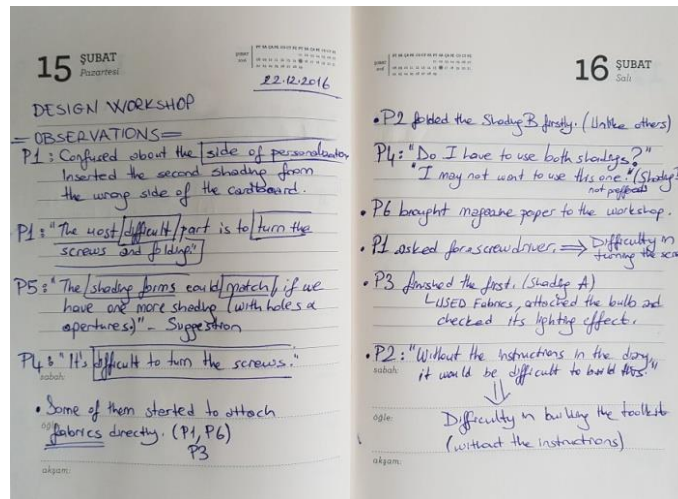 15 ŞUBAT
Pazartesi
22.12.2016
DESIGN WORKSHOP
= OBSERVATIONS =
P1 : Confused about the side of personalization
Inserted the second shading from
the wrong side of the cardboard.
P1 : "The most difficult part is to turn the
screws and folding."
P5 : "The shading forms could match, if we
have one more shading (with holes &
apertures)" - Suggestion
P4 : "It's difficult to turn the screws."
sabah:
• Some of them started to attach
öğle:
fabrics directly. (P1, P6)
P3
akşam:
16 ŞUBAT
Salı
• P2 folded the Shading B firstly. (Unlike others)
P4 : "Do I have to use both shadings?"
"I may not want to use this one." (Shading B
not preferred
• P6 brought magazine paper to the workshop.
• P1 asked for a screwdriver. ⇒ Difficulty in
turning the screw
• P3 finished the first. (shading A)
USED FABRICS, attached the bulb and
checked its lighting effect.
• P2 : "Without the instructions in the diary,
sabah:
it would be difficult to build this."
öğle:
Difficulty in building the toolkit
(without the instructions)
akşam: